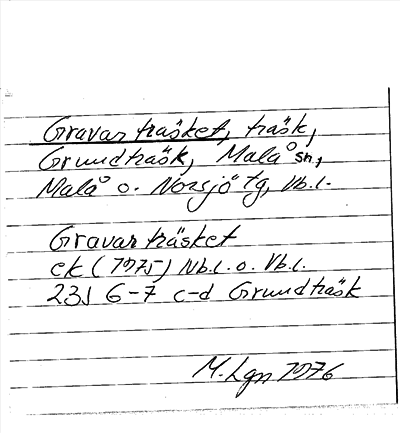 Gravarträsket, träsk,
Grundträsk, Malå sn,
Malå o. Norsjö tg, Vb.l.
Gravarträsket
ek (1975) Nb.l. o. Vb.l.
23J 6-7 c-d Grundträsk
M. Lgn 1976